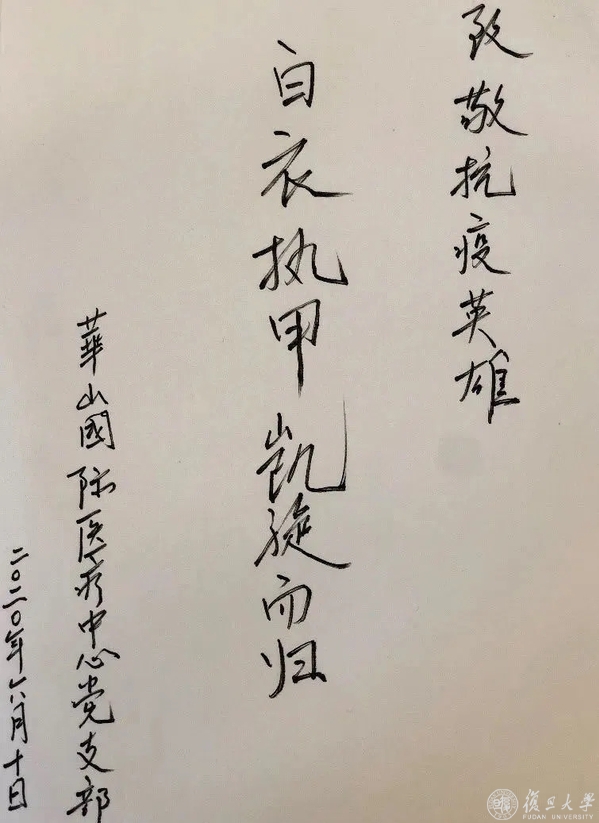 致敬抗疫英雄
白衣执甲凯旋而归
華山國际医疗中心党支部
二〇二〇年六月十日
復旦大學
FUDAN UNIVERSITY